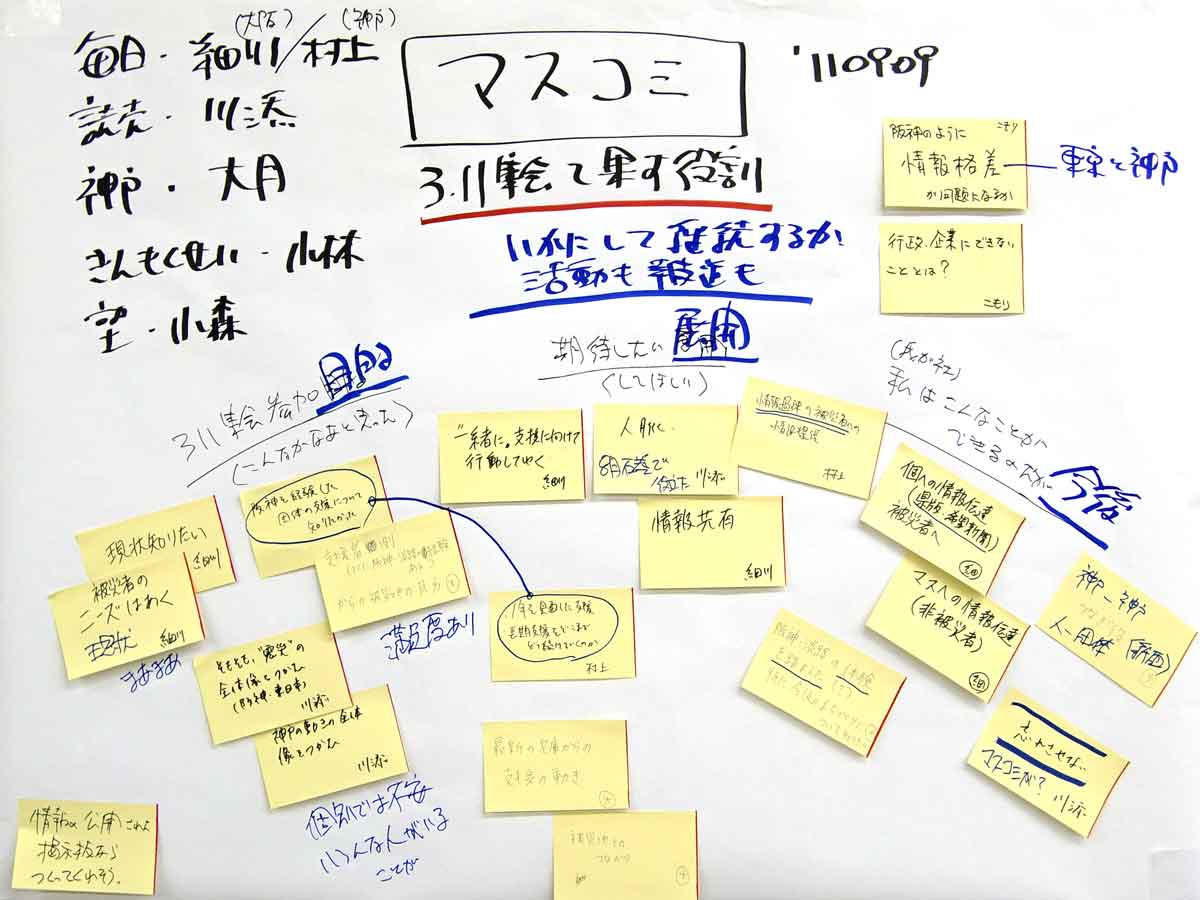 (大阪) (神戸)
毎日・細川/村上
読売・川添
神戸・大月
さんもくせい・小林
望・小森
マスコミ
'110909
3.11集会で果す役割
いかにして継続するか
活動も報道も
阪神のように
こもり
情報格差
が問題になるか
東京と神戸
行政、企業にできない
こととは?
こもり
3.11集会参加目的
(こんなかなあと思った)
期待したい展開
(してほしい)
(我が社)
私はこんなことが
できるのだが
今後
一緒に。支援に向けて
行動していく
細川
人材
川添
情報提供
村上
情報共有
細川
個への情報伝達
(県版、希望新聞)
被災者へ
細
マスへの情報伝達
(非被災者)
細
神戸-神戸
人、団体
忘れさせない
マスコミが?川添
阪神を経験した
団体の支援について
知りたかった
現状知りたい
細川
被災者の
ニーズはあく
現状 細川
まあまあ
満足度あり
そもそも、"震災"の
全体像をつかむ
(阪神 東日本)
川添
神戸の動きの全体
像をつかむ
川添
個別では不安
いろんな人がいる
ことが
1年を企画した支援
長期支援をどこまで
どう続けていくのか
村上
阪神・淡路の体験
最新の
支援の動き
被災地との
つながり
情報の公開 これよ
掲示板なら
つくってくれそう。